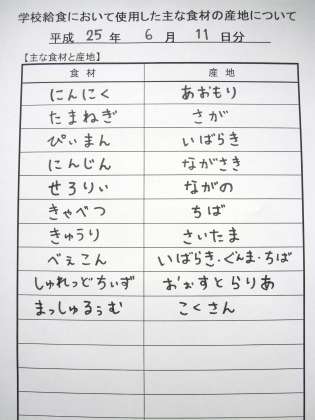 学校給食において使用した主な食材の産地について
平成 25 年 6 月 11 日分
【主な食材と産地】
食材 産地
にんにく あおもり
たまねぎ さが
ぴぃまん いばらき
にんじん ながさき
せろりぃ ながの
きゃべつ ちば
きゅうり さいたま
べぇこん いばらき・ぐんま・ちば
しゅれっどちぃず おぉすとらりあ
まっしゅるぅむ こくさん